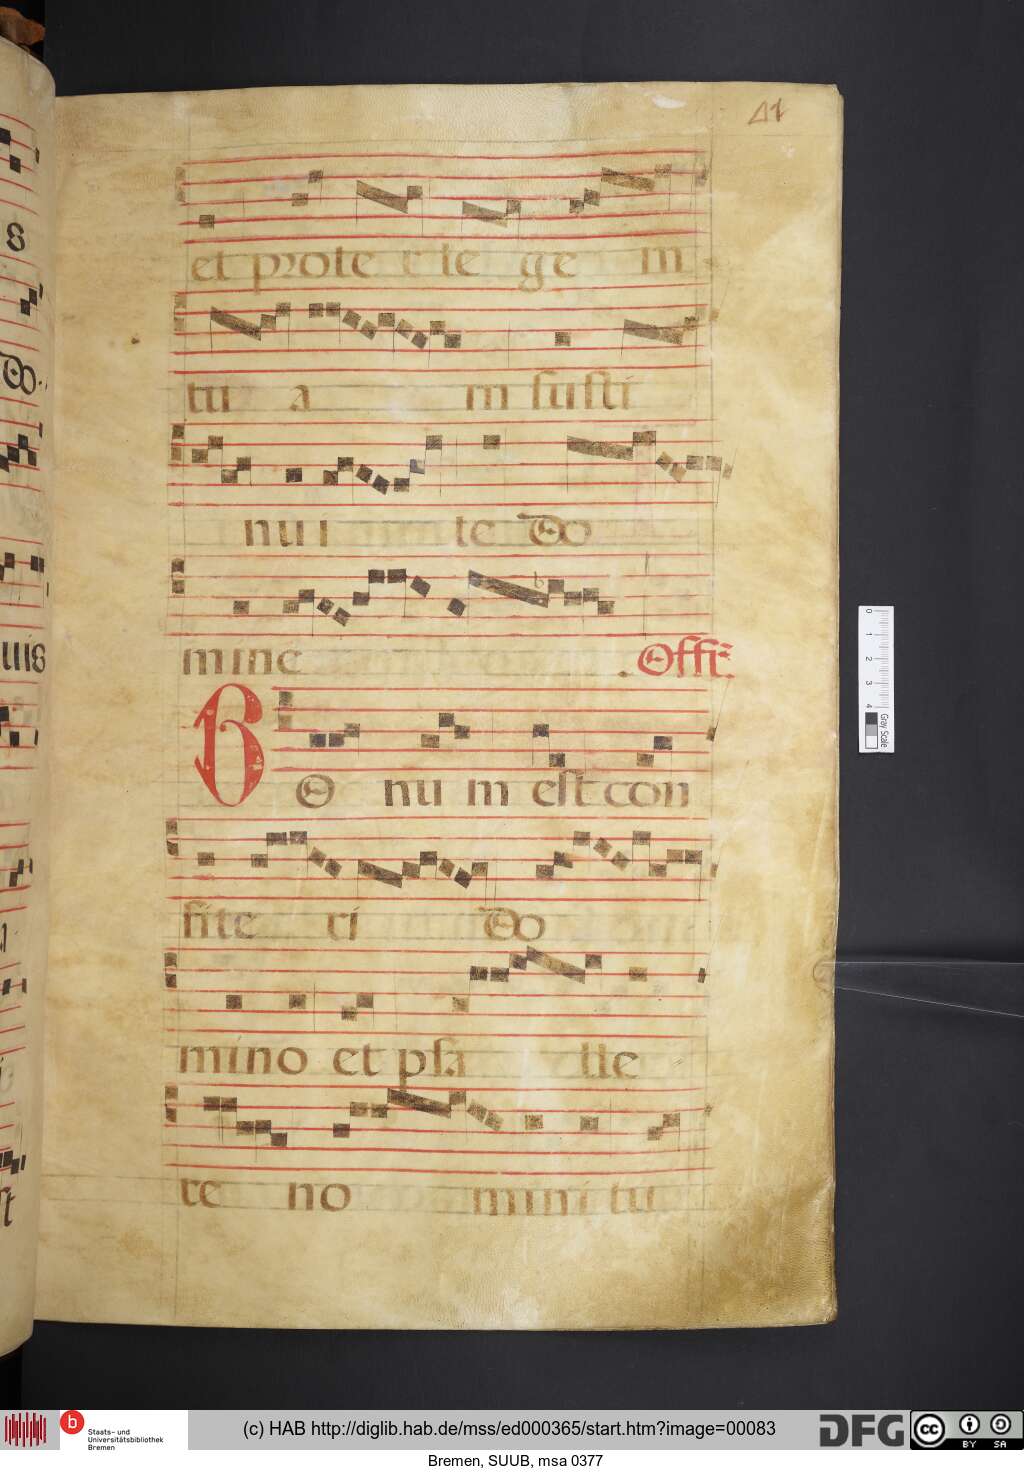 41
et prote r te ge m
tu a m susti
nu i te do
mine . Offr.
B O nu m est con
fite ri Do
mino et psa lle
re no mini tu
s
do.
uis
0 1 2 3 4
Gray Scale
b Staats- und Universitätsbibliothek Bremen
(c) HAB http://diglib.hab.de/mss/ed000365/start.htm?image=00083
DFG
cc BY SA
Bremen, SUUB, msa 0377